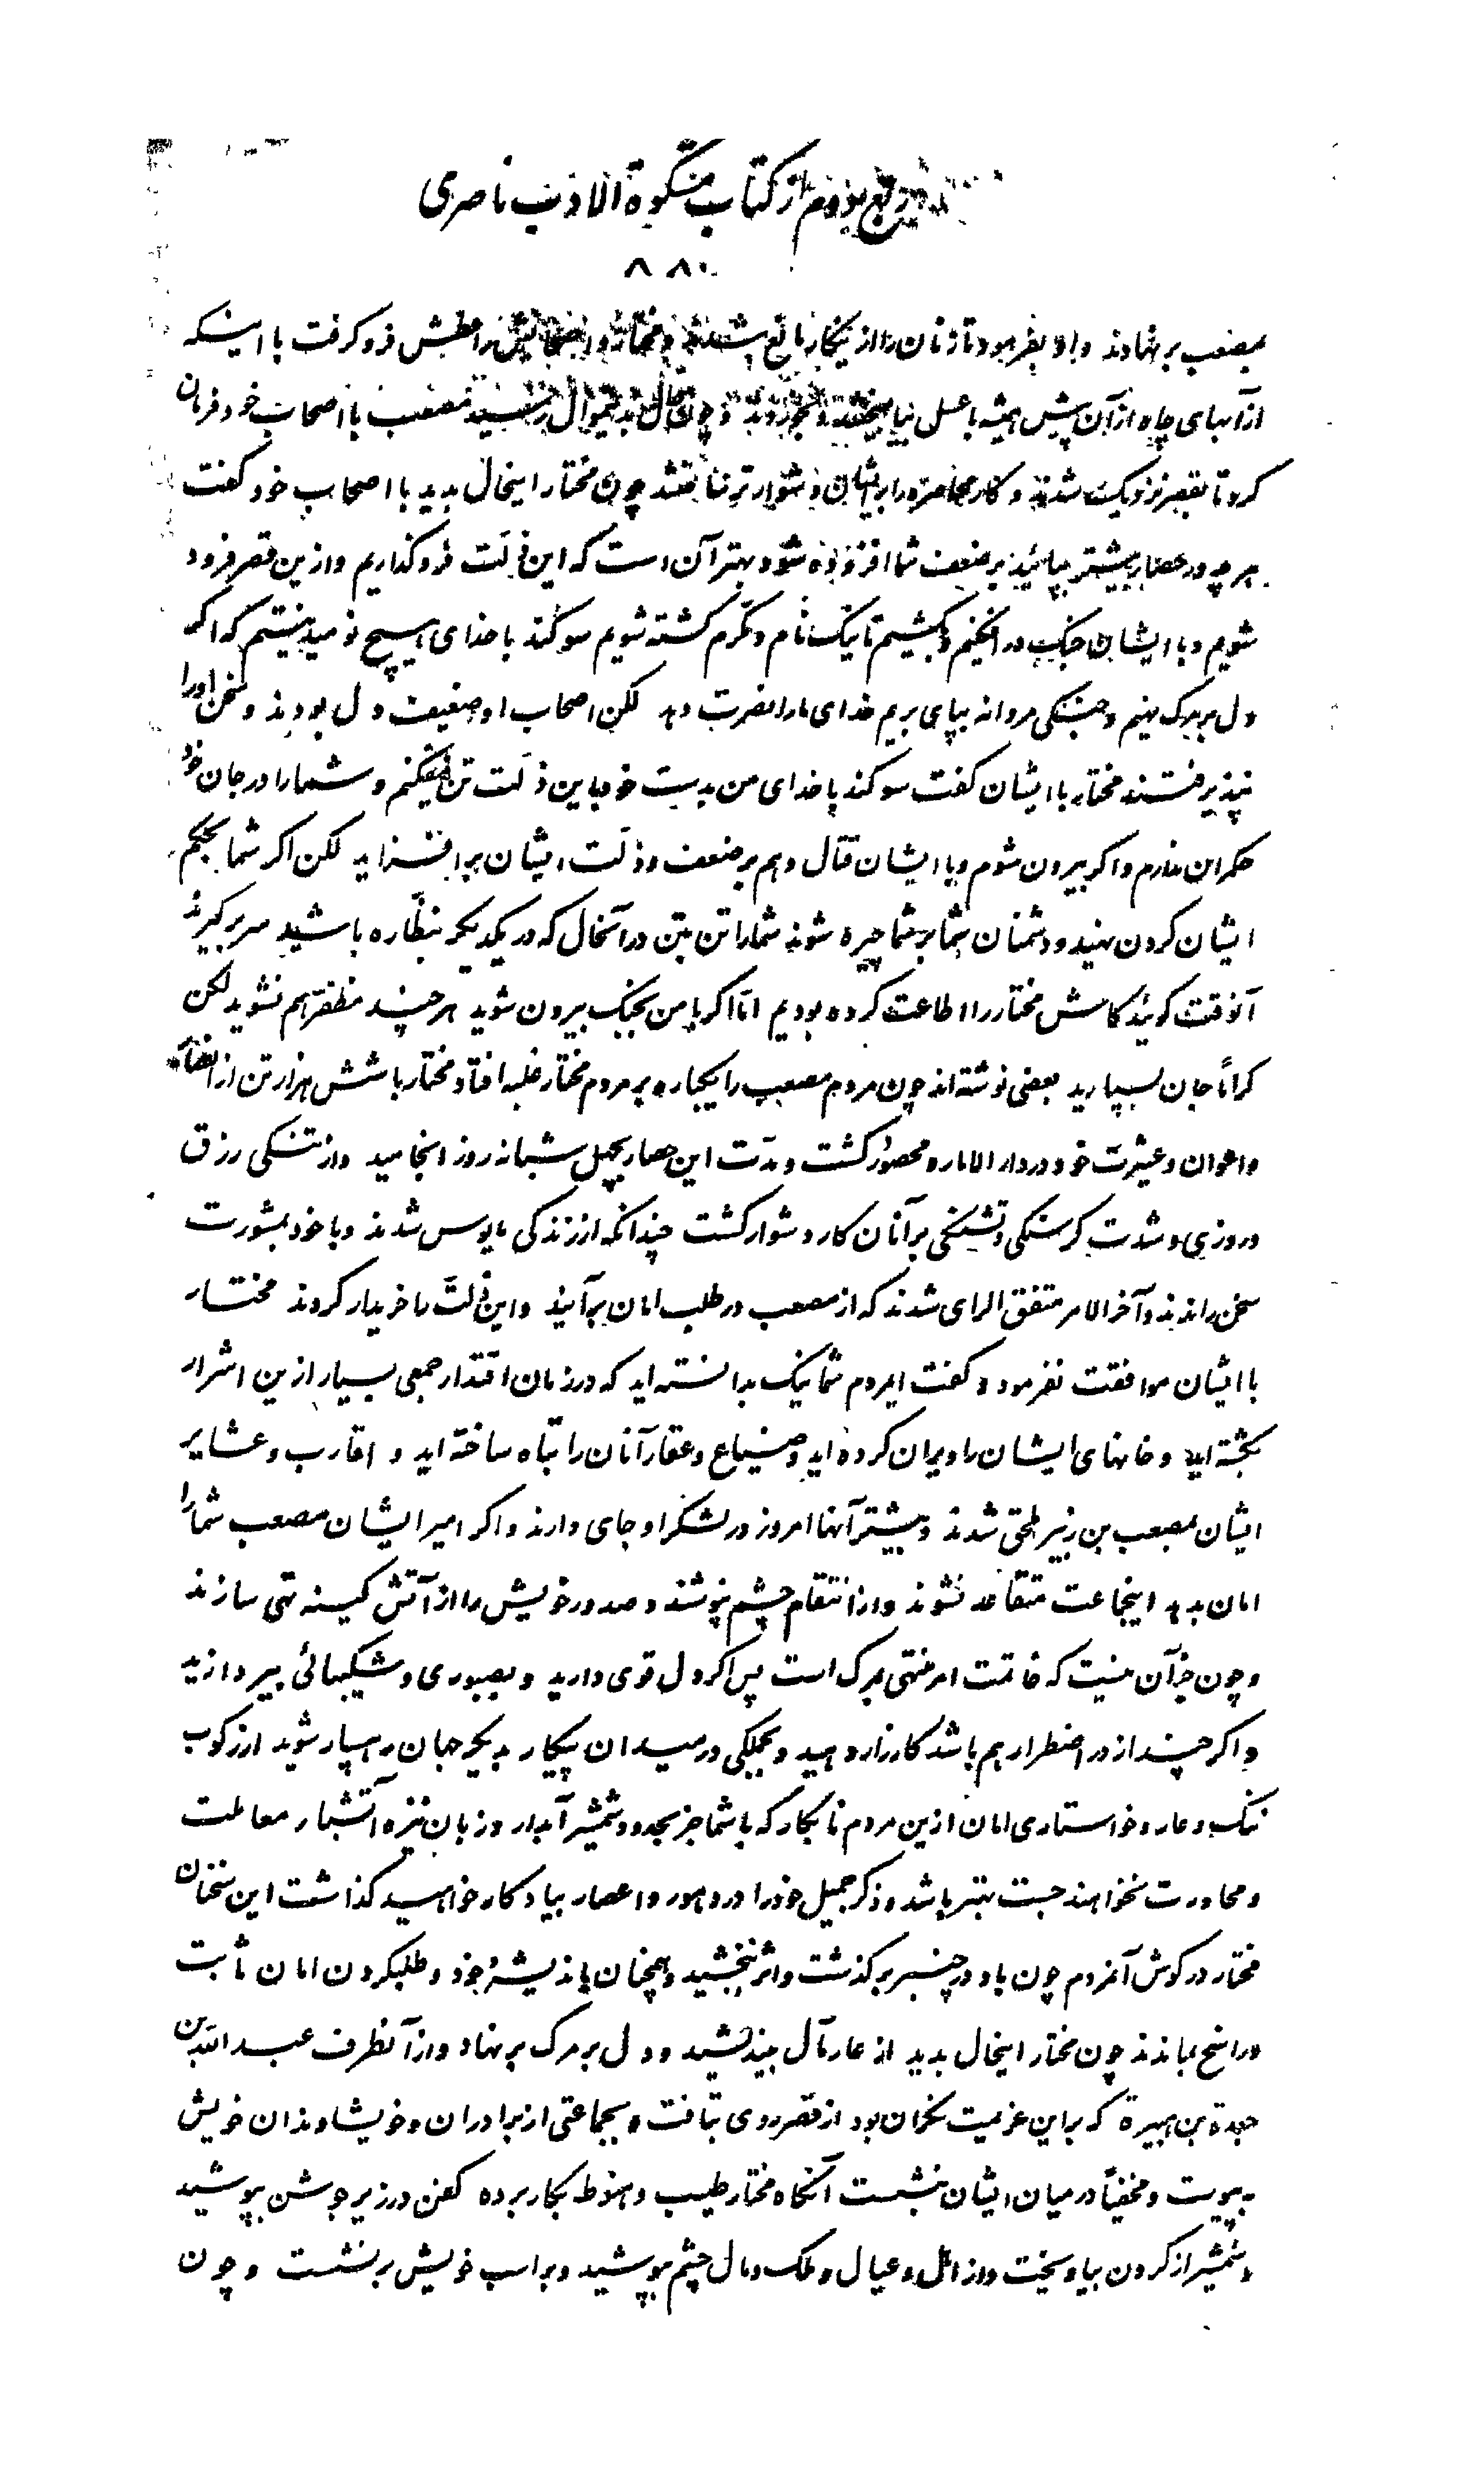 ربع دوم از کتاب مشکوة الادب ناصری
۸۸۰
بمصعب بر نهادند و او بفرمود تا زنان را از ینکار مانع شدند و مختار و اصحابش را عطش فرو کرفت با اینکه
از آبهای چاه از آن پیش همیشه با عسل بیامیختند و بخوردند و چون حال بدینمنوال رسید مصعب با اصحاب خود فرمان
کرد تا بقصر نزدیک شدند و کار محاصره را بر ایشان دشوارتر ساختند چون مختار اینحال بدید با اصحاب خود کفت
هر چه در حصار بیشتر بپائید بر ضعف شما افزوده شود بهتر آن است که این ذلت فرو کذاریم و ازین قصر فرود
شویم و با ایشان جنک در افکنیم و بکشیم تا نیک نام و مکرم کشته شویم سوکند با خدای هیچ نومید نیستم که اکر
دل بر مرک نهیم و جنکی مردانه بپای بریم خدای ما را نصرت دهد لکن اصحاب او ضعیف دل بودند و سخن او را
نپذیرفتند مختار با ایشان کفت سوکند با خدای من بدست خود باین ذلت تن نیفکنم و شما را در جان خود
حکمران ندارم و اکر بیرون شوم و با ایشان قتال دهم بر ضعف و ذلت ایشان بر افزاید لکن اکر شما بحکم
ایشان کردن نهید و دشمنان شما بر شما چیره شوند شما را تن بتن در آنحال که در یکدیکر نظاره باشید سر بر کیرند
آنوقت کوئید کاش مختار را اطاعت کرده بودیم اما اکر با من بجنک بیرون شوید هر چند مظفر هم نشوید لکن
کراماً جان بسپارید بعضی نوشته اند چون مردم مصعب را یکباره بر مردم مختار غلبه افتاد مختار با شش هزار تن از انصار
و اعوان و عشیرت خود در دار الاماره محصور کشت و مدت این حصار بچهل شبانه روز انجامید و از تنکی رزق
و روزی و شدت کرسنکی و تشنکی بر آنان کار دشوار کشت چندانکه از زندکی مایوس شدند و با خود بمشورت
سخن راندند و آخر الامر متفق الرای شدند که از مصعب در طلب امان بر آیند و این ذلت را خریدار کردند مختار
با ایشان موافقت نفرمود و کفت ایمردم شما نیک بدانسته اید که در زمان اقتدار جمعی بسیار ازین اشرار
بکشته اید و خانهای ایشان را ویران کرده اید و ضیاع و عقار آنان را تباه ساخته اید و اقارب و عشایر
ایشان بمصعب بن زبیر ملحق شدند و بیشتر آنها امروز در لشکر او جای دارند و اکر امیر ایشان مصعب شما را
امان بدهد اینجماعت متقاعد نشوند و از انتقام چشم نپوشند و صدور خویش را از آتش کینه تهی سازند
و چون جز آن نیست که خاتمت امر منتهی بمرک است پس اکر دل قوی دارید و بصبوری و شکیبائی بپردازید
و اکر چند از در اضطرار هم باشد کارزار دهید و بجملکی در میدان پیکار بدیکر جهان رهسپار شوید از رکوب
ننک و عار و خواستاری امان ازین مردم نابکار که با شما جز بحدود شمشیر آبدار و زبان نیزه آتشبار معاملت
و محاورت نخواهند جست بهتر باشد و ذکر جمیل خود را در دهور و اعصار بیادکار خواهید کذاشت این سخنان
مختار در کوش آنمردم چون باد در چنبر بر کذشت و اثر نبخشید و همچنان باندیشۀ خود و طلبکردن امان ثابت
و راسخ بماندند چون مختار اینحال بدید از عار مآل بیندیشید و دل بر مرک بر نهاد و از آنطرف عبد الله بن
جعدة بن هبیرة که بر این عزمیت نکران بود از قصر روی بتافت و بجماعتی از برادران و خویشاوندان خویش
بپیوست و مخفیاً در میان ایشان بنشست آنکاه مختار طیب و حنوط بکار برده کفن در زیر جوشن بپوشید
و شمشیر از کردن بیاویخت و از اهل و عیال و ملک و مال چشم بپوشید و بر اسب خویش بر نشست و چون